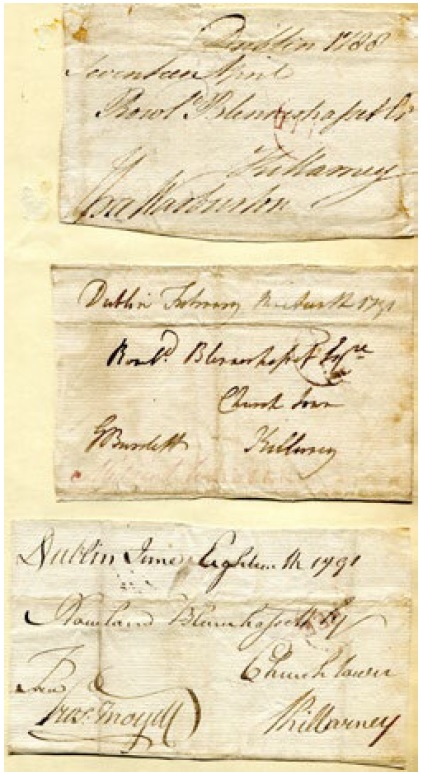 Dublin 1788
Seventeen April
Rowl. Blennerhasset Es
Killarney
Warburton
Dublin February 1791
Rowld. Blennerhasset Esqre
Church Town
GBurdett Killarney
Dublin June Eighteenth 1791
Rowland Blennerhassett Esqr
Church town
Free
Killarney